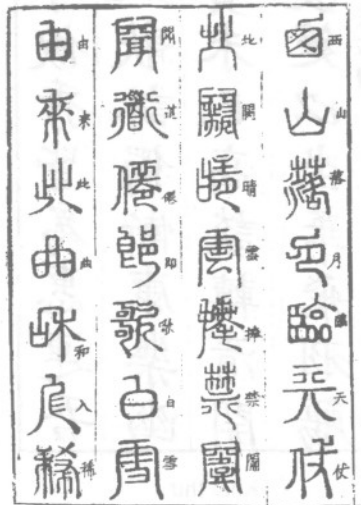 西山落月臨天仗
西山落月臨天仗
北闕晴雲捧禁闈
北闕晴雲捧禁闈
聞道僊郎歌白雪
聞道僊郎歌白雪
由來此曲和人稀
由來此曲和人稀